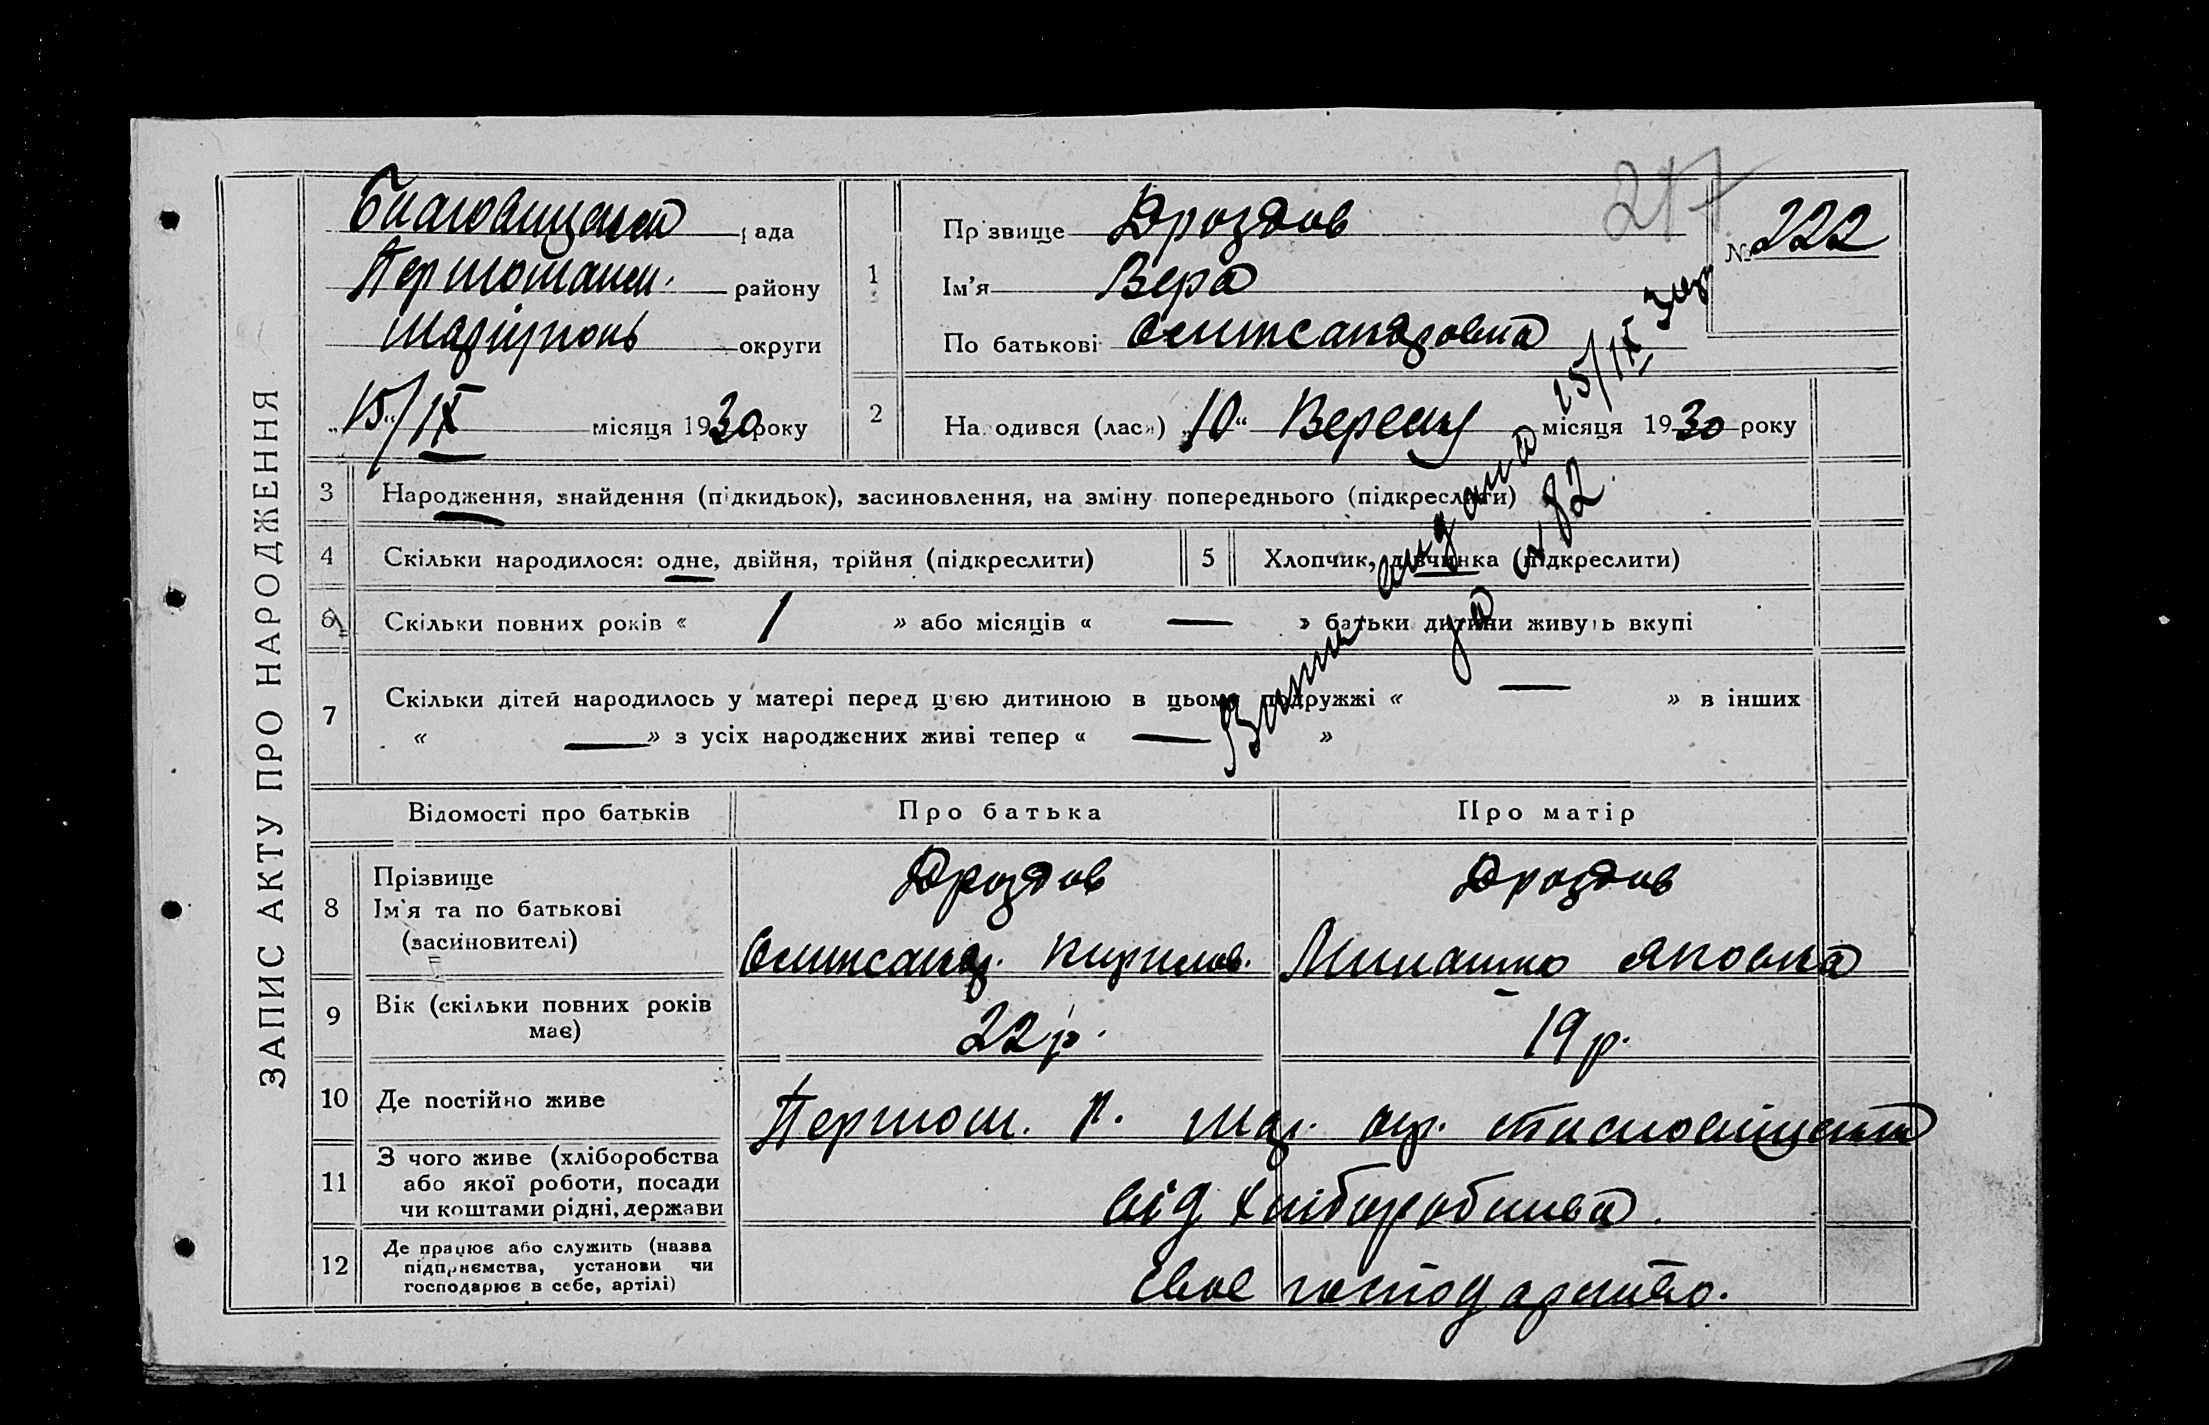 ЗАПИС АКТУ ПРО НАРОДЖЕННЯ
217
№ 222
Благовіщенська рада
Першотравн. району
Маріупіль округи
„15“/IX місяця 1930 року
1
Прізвище Дроздов
Ім'я Вера
По батькові Олександровна
2
Народився (лась) „10“ Вересня місяця 1930 року
3 Народження, знайдення (підкидьок), засиновлення, на зміну попереднього (підкреслити)
4 Скільки народилося: одне, двійня, трійня (підкреслити)
5 Хлопчик, дівчинка (підкреслити)
6 Скільки повних років « 1 » або місяців « — » батьки дитини живуть вкупі
7 Скільки дітей народилось у матері перед цією дитиною в цьому подружжі « — » в інших
« — » з усіх народжених живі тепер « — »
видана 25/IX 30р
за № 82
Відомості про батьків
Про батька
Про матір
8 Прізвище
Ім'я та по батькові
(засиновителі)
Дроздов
Олександ. Кирилов.
Дроздов
Яковна
9 Вік (скільки повних років
має)
22 р.
19 р.
10 Де постійно живе
Першот. Р. Мар. окр.
11 З чого живе (хліборобства
або якої роботи, посади
чи коштами рідні, держави
від хліборобства.
12 Де працює або служить (назва
підприємства, установи чи
господарює в себе, артілі)
Своє господарство.